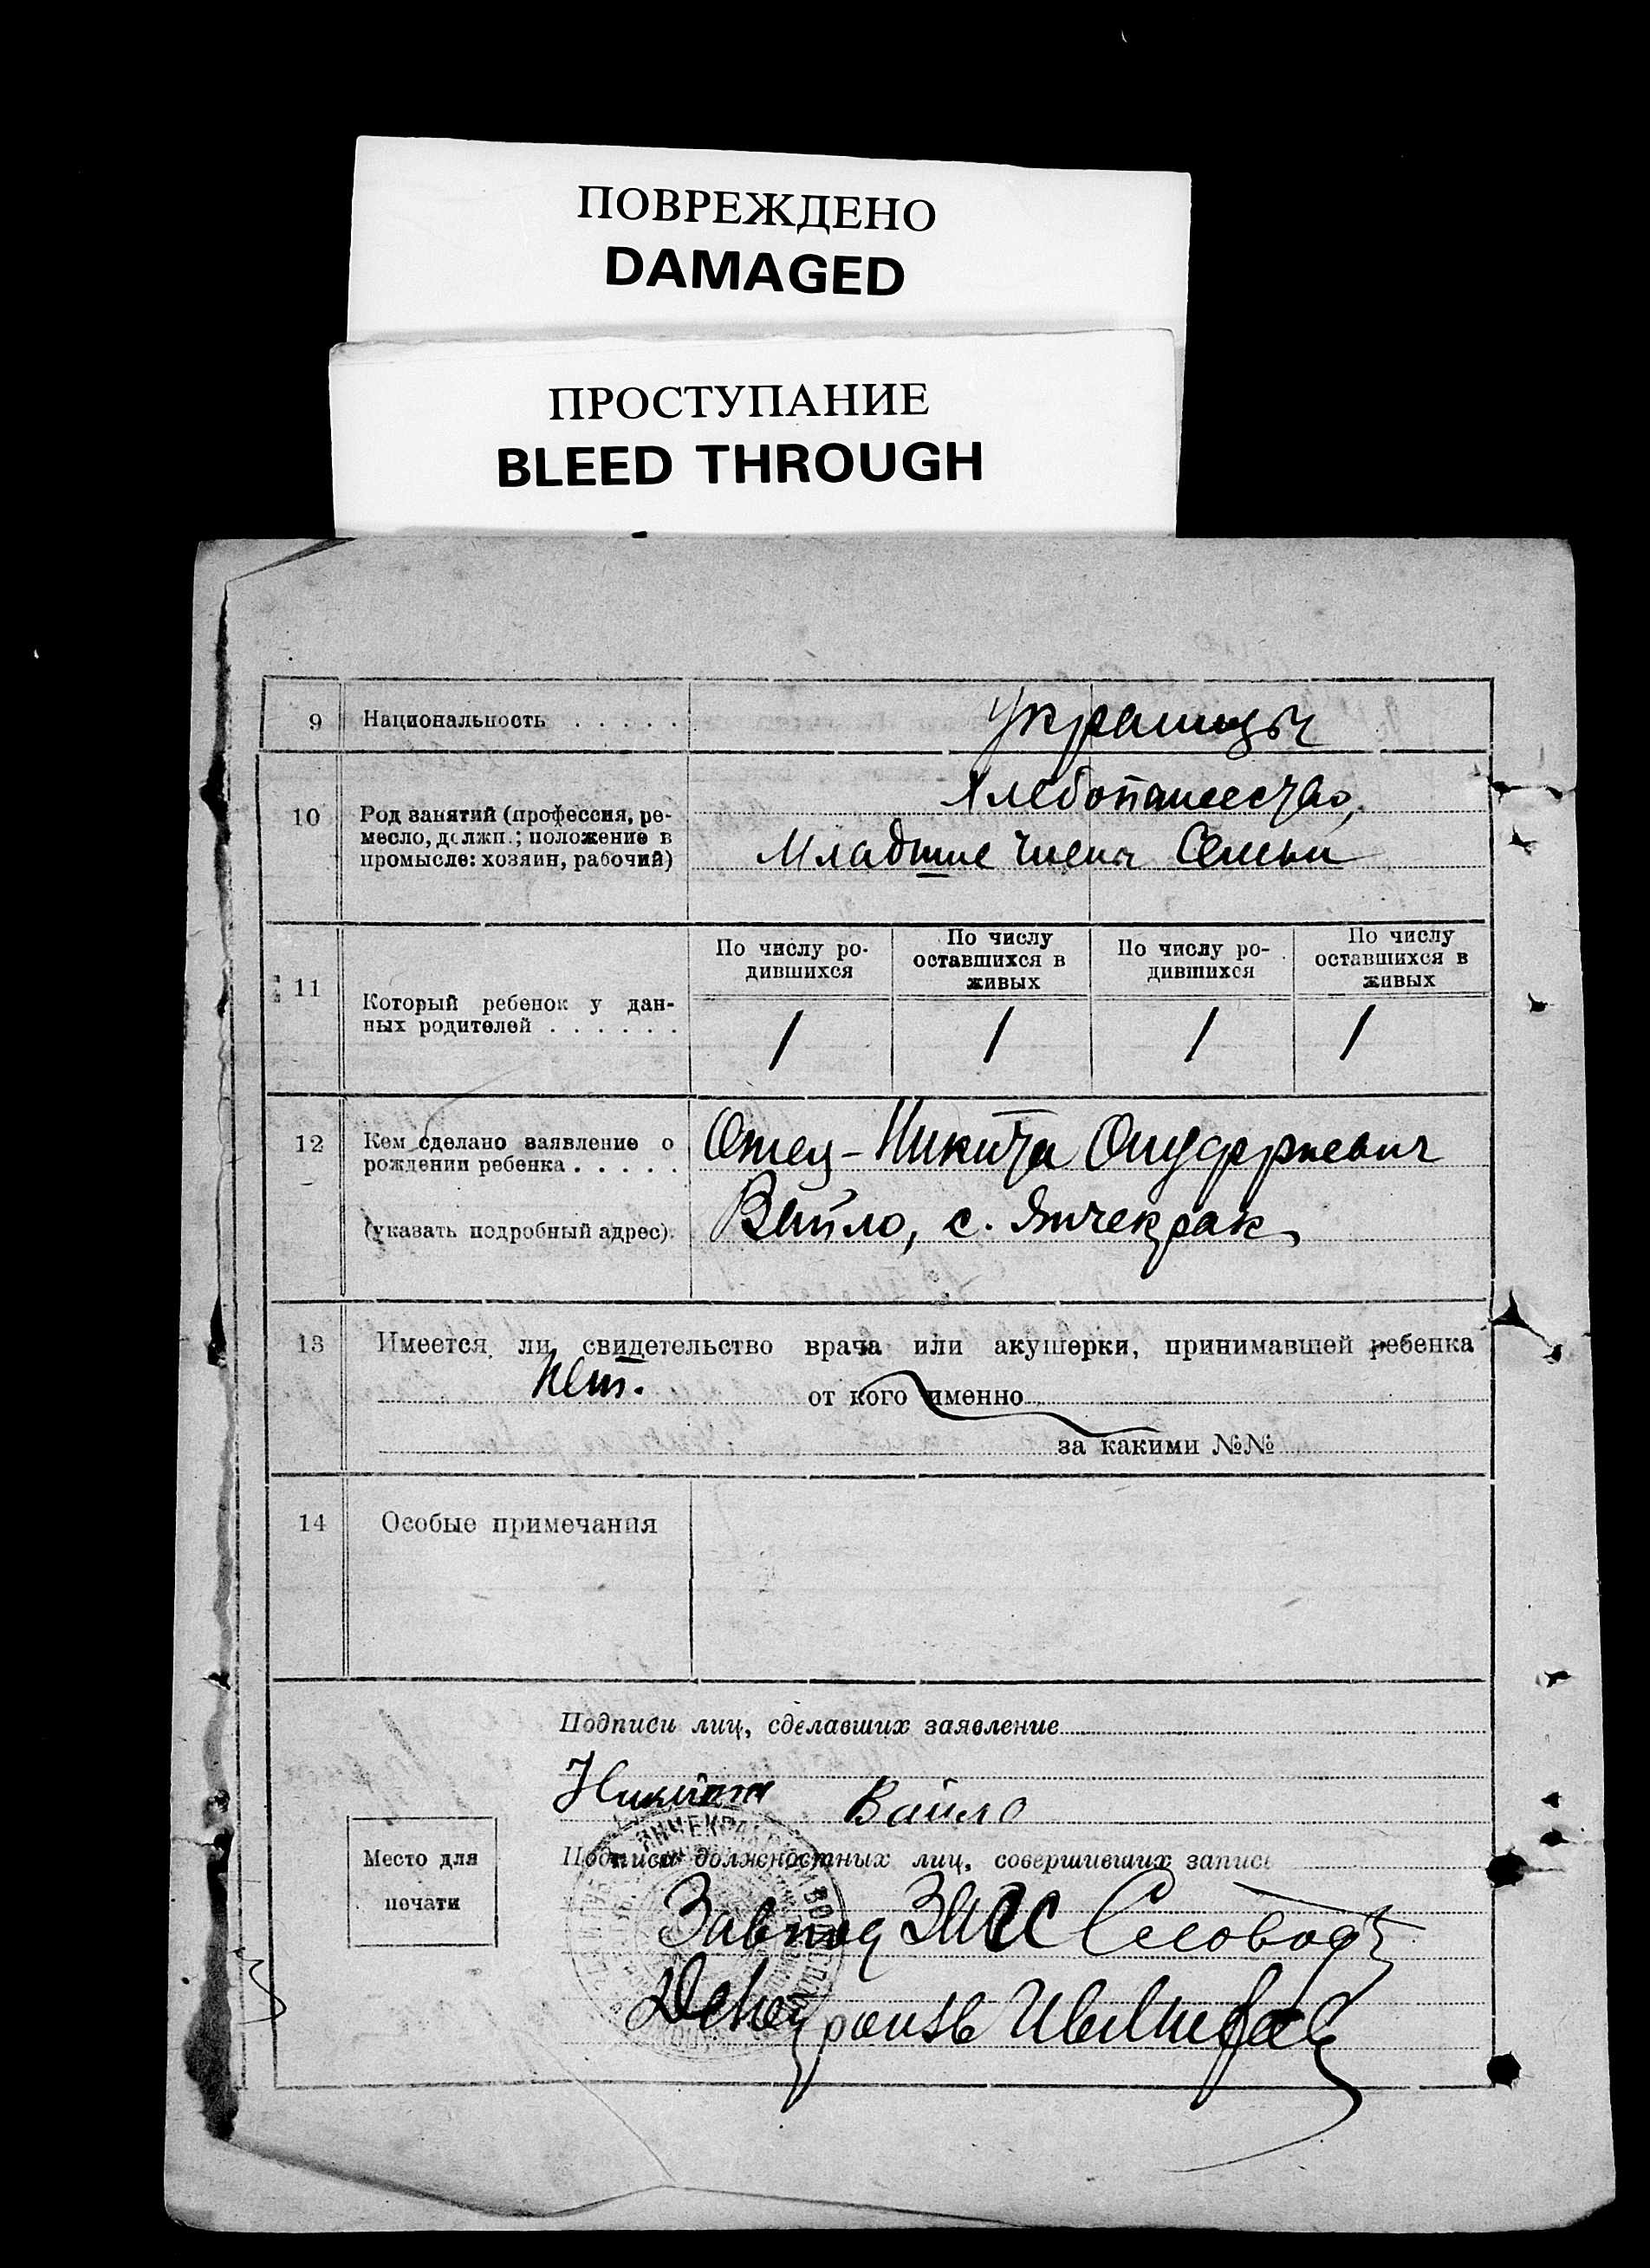 ПОВРЕЖДЕНО
DAMAGED
ПРОСТУПАНИЕ
BLEED THROUGH
9 Национальность . . . . . Украинцы
10 Род занятий (профессия, ре-
месло, должн.; положение в
промысле: хозяин, рабочий)
Хлебопашество,
Младшие члены Семьи
11 Который ребенок у дан-
ных родителей . . . . . .
По числу ро-
дившихся
По числу
оставшихся в
живых
По числу ро-
дившихся
По числу
оставшихся в
живых
1 1 1 1
12 Кем сделано заявление о
рождении ребенка . . . . .
(указать подробный адрес).
Отец - Никита Онуфриевич
Вайло, с. Янчекрак
13 Имеется ли свидетельство врача или акушерки, принимавшей ребенка
Нет. от кого именно
за какими №№
14 Особые примечания
Подписи лиц, сделавших заявление
Никита Вайло
Подписи должностных лиц, совершивших запись
Место для
печати
Завпод ЗАГС